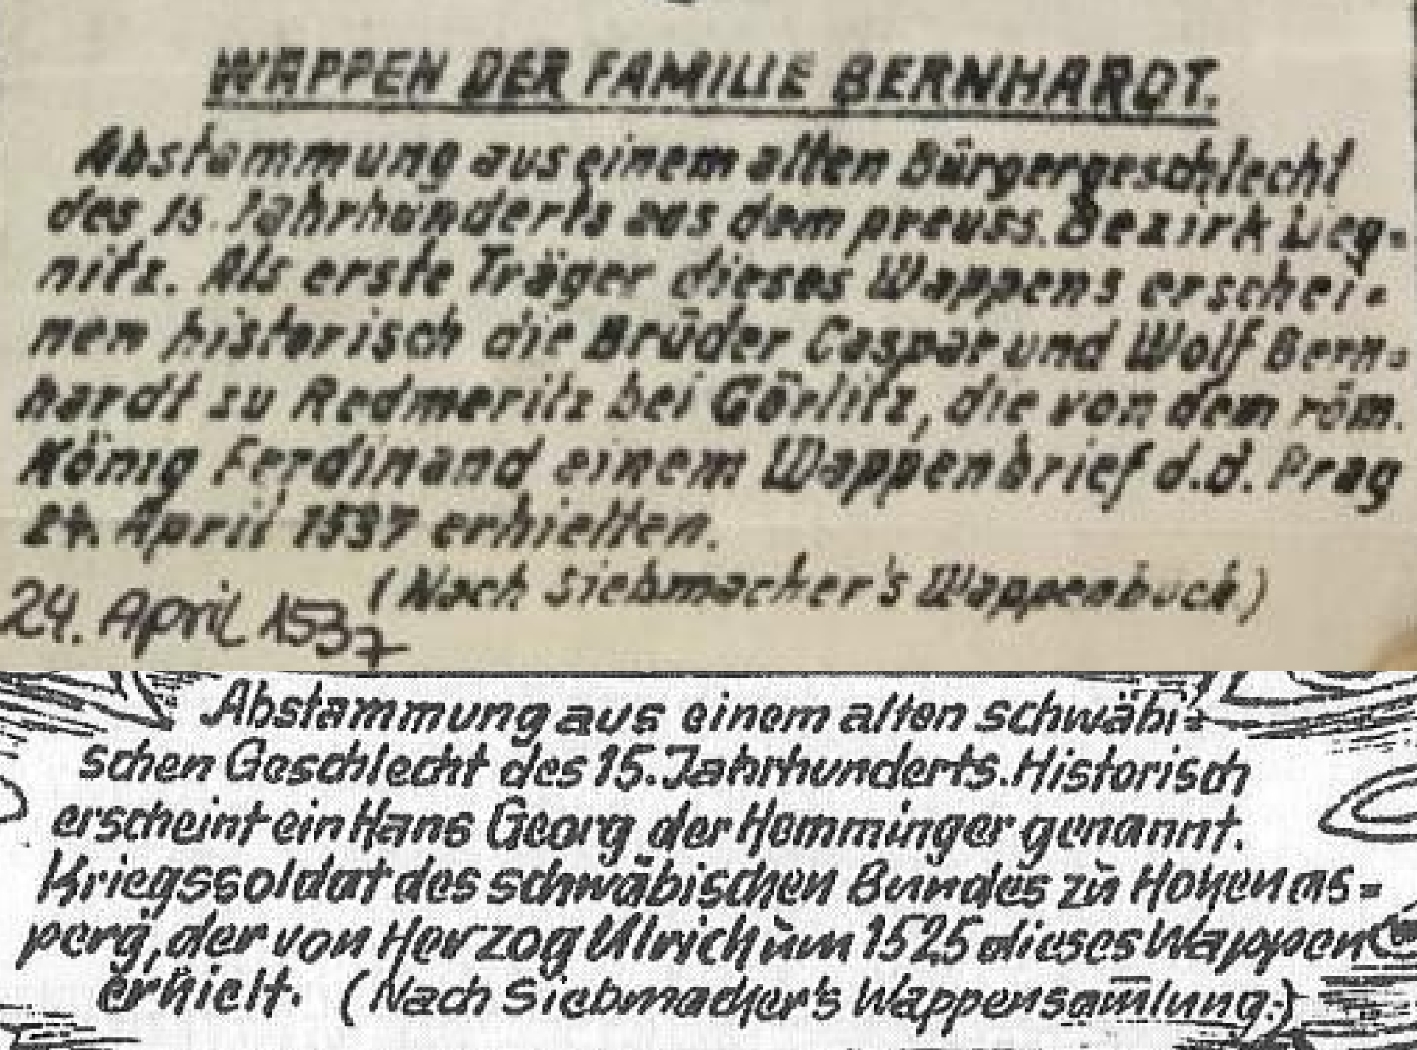 WAPPEN DER FAMILIE BERNHARDT.
Abstammung aus einem alten Bürgergeschlecht
des 15. Jahrhunderts aus dem preuss. Bezirk Lieg-
nitz. Als erste Träger dieses Wappens erschei-
nen historisch die Brüder Caspar und Wolf Bern-
hardt zu Redmeritz bei Görlitz, die von dem röm.
König Ferdinand einem Wappenbrief d.d. Prag
24. April 1537 erhielten.
(Nach Siebmacher's Wappenbuch)
24. April 1537
Abstammung aus einem alten schwäbi-
schen Geschlecht des 15. Jahrhunderts. Historisch
erscheint ein Hans Georg der Hemminger genannt.
Kriegssoldat des schwäbischen Bundes zu Hohenas-
perg, der von Herzog Ulrich um 1525 dieses Wappen
erhielt. (Nach Siebmacher's Wappensam̅lung.)